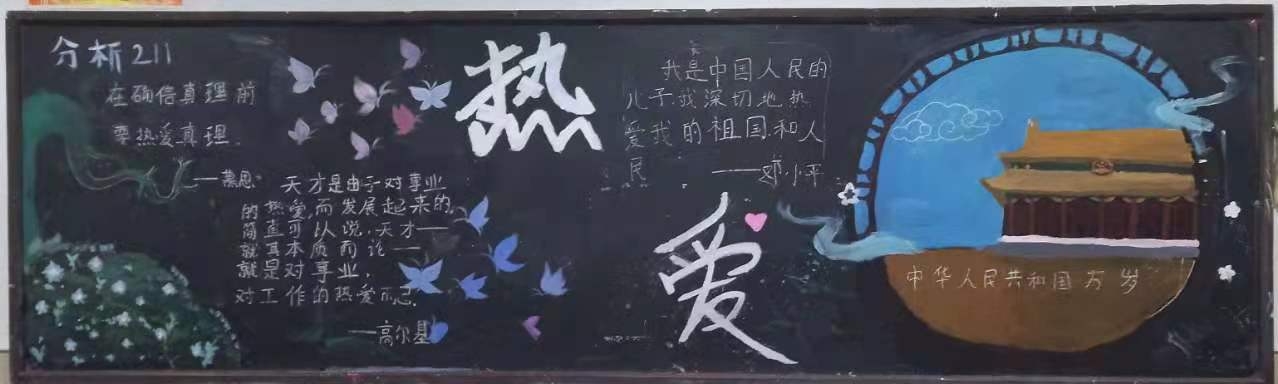 分析211
在确信真理前
要热爱真理.
——慕恩
天才是由于对事业
的热爱,而发展起来的,
简直可以说,天才——
就其本质而论——
就是对事业,
对工作的热爱而已.
——高尔基
热
爱
我是中国人民的
儿子.我深切地热
爱我的祖国和人
民.
——邓小平
中华人民共和国万岁